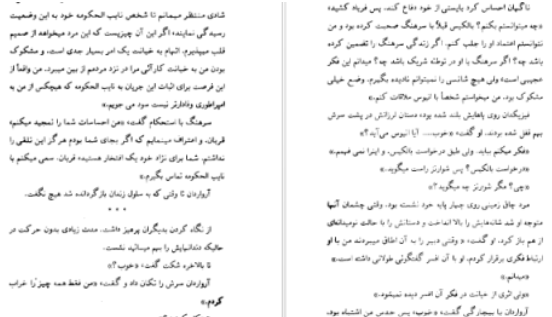 ناگهان احساس کرد بایستی از خود دفاع کند، پس فریاد کشید:
«چه میتوانستم بکنم؟ بالکیس قبلاً با سرهنگ صحبت کرده بود و من
نتوانستم اعتماد او را جلب کنم. اگر زندگی سرهنگ را تضمین کرده
باشد چه؟ اگر سرهنگ با او در توطئه شریک باشد چه؟ میدانم این فکر
عجیبی است» ولی هیچ شانسی را نمیتوانم نادیده بگیرم. وضع خیلی
مشکوک بود. من میخواستم شخصاً با انیوس ملاقات کنم.»
فیزیکدان روی پاهایش بلند شده بود، دستان لرزانش در پشت سرش
بهم قفل شده بودند. او گفت: «خوب... آیا انیوس می‌آید؟»
«فکر میکنم بیاید. ولی طبق درخواست بالکیس، و اینرا نمی فهمم.»
«درخواست بالکیس؟ پس شوارتز راست میگوید.»
«چی؟ مگر شوارتز چه میگوید؟»
مرد چاق زمینی روی چهار پایه خود نشسته بود. وقتی چشمان آنها
متوجه او شد شانه‌هایش را بالا انداخت و دستانش را با حالت نومیدانه‌ای
از هم باز کرد. او گفت: « وقتی دبیر را به آن اطاق میبردند من با او
ارتباط فکری برقرار کردم. او با آن افسر گفتگوئی طولانی داشته است.»
«میدانم.»
«ولی اثری از خیانت در فکر آن افسر دیده نمیشود.»
آرواردان با بیچارگی گفت: «خوب، پس حدس من اشتباه بود.
شادی منتظر میمانم تا شخص نایب الحکومه خود به این وضعیت
رسیدگی نماید؛ اگر این آن چیزیست که این مرد میخواهد از صمیم
قلب میپذیرم. اتهام به خیانت یک امر بسیار جدی است، و مشکوک
بودن من به خیانت کارآئی مرا در نزد مردمم از بین میبرد. من واقعاً از
این فرصت برای اثبات این جریان به نایب الحکومه که هیچکس از من به
امپراطوری وفادارتر نیست سود می جویم.»
سرهنگ با استحکام گفت: «من احساسات شما را تمجید میکنم
قربان، و اعتراف مینمایم که اگر بجای شما بودم هرگز این تلقی را
نداشتم. شما برای نژاد خود یک افتخار هستید، قربان. سعی میکنم با
نایب الحکومه تماس بگیرم.»
آرواردان تا وقتی که به سلول زندان بازگردانده شد هیچ نگفت.
از نگاه کردن بدیگران پرهیز داشت. مدت زیادی بدون حرکت در
حالیکه دندانهایش را بهم میسائید، نشست.
تا بالاخره شکت گفت: «خوب؟»
آرواردان سرش را تکان داد و گفت: «من فقط همه چیز را خراب
کردم.»